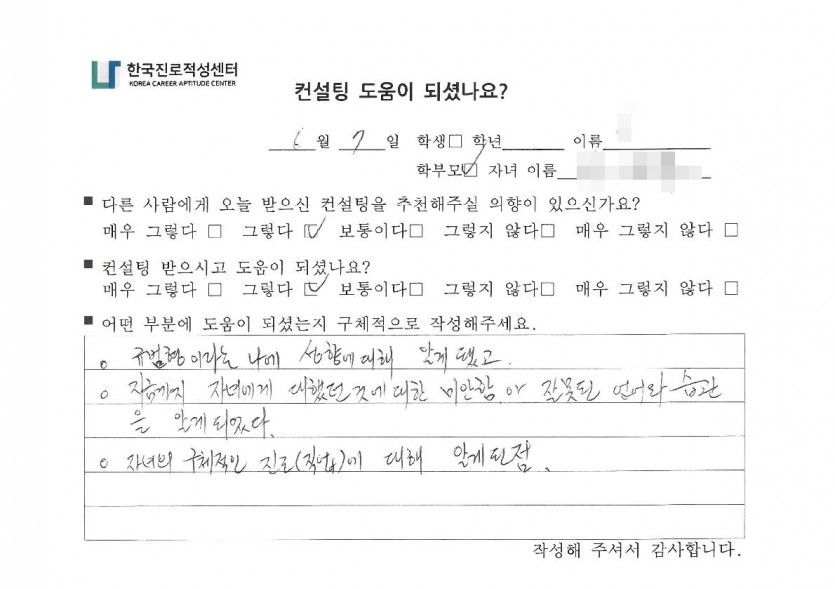 한국진로적성센터
KOREA CAREER APTITUDE CENTER
컨설팅 도움이 되셨나요?
6월 7일 학생□ 학년 이름
학부모☑ 자녀 이름
■ 다른 사람에게 오늘 받으신 컨설팅을 추천해주실 의향이 있으신가요?
매우 그렇다 □ 그렇다 ☑ 보통이다□ 그렇지 않다□ 매우 그렇지 않다 □
■ 컨설팅 받으시고 도움이 되셨나요?
매우 그렇다 □ 그렇다 ☑ 보통이다□ 그렇지 않다□ 매우 그렇지 않다 □
■ 어떤 부분에 도움이 되셨는지 구체적으로 작성해주세요.
○ 규범형이라는 나에 성향에 대해 알게 됐고.
○ 지금까지 자녀에게 대했던 것에 대한 미안함. 잘못된 언어와 습관
을 알게 되었다.
○ 자녀의 구체적인 진로(직업)에 대해 알게된점.
작성해 주셔서 감사합니다.